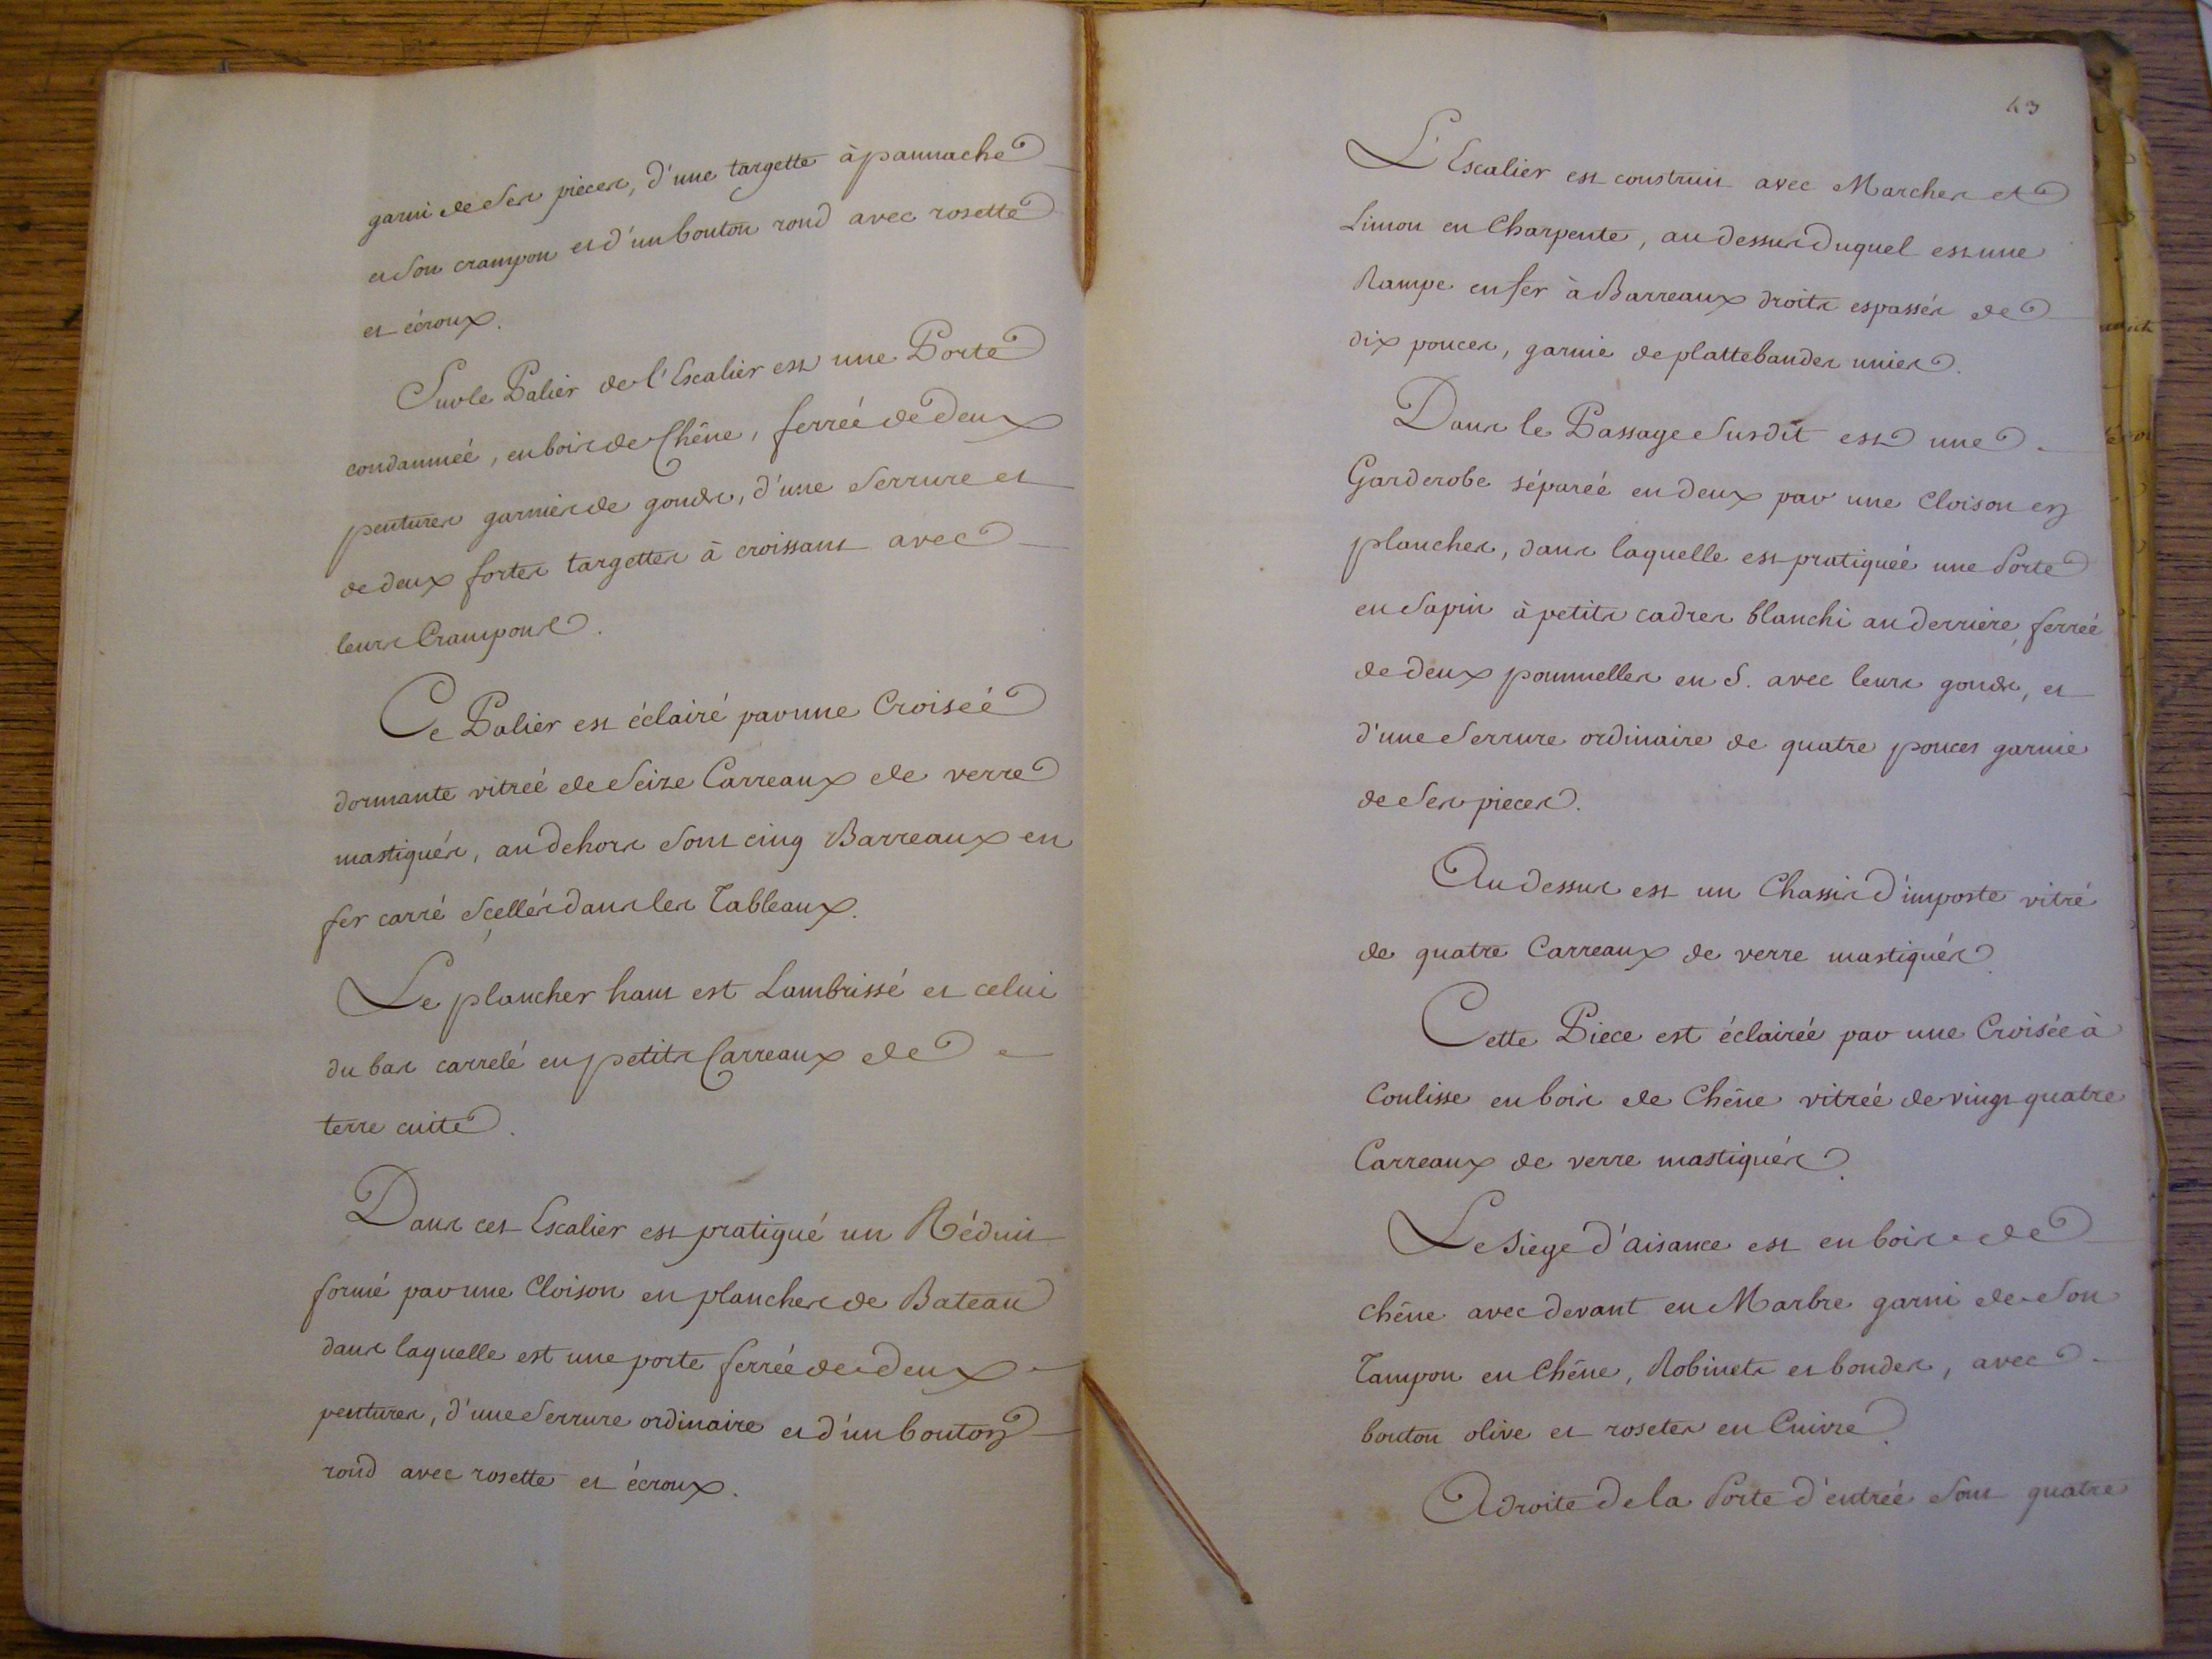 garni de Ses pieces, d'une targette à pannache
et Son crampon et d'un bouton rond avec rosette
et écroux.
Sur le Palier de l'Escalier est une Porte
condamnéé, en bois de Chêne, ferréé de deux
pentures garnies de gonds, d'une Serrure et
de deux fortes targettes à croissant avec
leurs Crampons.
Ce Palier est éclairé par une Croiséé
dormante vitréé de Seize Carreaux de verre
mastiqués, au dehors Sont cinq Barreaux en
fer carré Scellés dans les Tableaux.
Le plancher haut est Lambrissé et celui
du bas carrelé en petits Carreaux de
terre cuite.
Dans cet Escalier est pratiqué un Réduit
formé par une Cloison en planches de Bateau
dans laquelle est une porte ferréé de deux
pentures, d'une Serrure ordinaire et d'un bouton
rond avec rosette et écroux.
43
L'Escalier est construit avec Marches et
Limon en Charpente, au dessus Duquel est une
Rampe en fer à Barreaux droits espassés de
dix pouces, garnie de plattebandes unies.
Dans le Passage Susdit est une
Garderobe séparéé en deux par une Cloison en
planches, dans laquelle est pratiquéé une Porte
en Sapin à petits cadres blanchi au derriere, ferréé
de deux poumelles en S. avec leurs gonds, et
d'une Serrure ordinaire de quatre pouces garnie
de Ses pieces.
Au dessus est un Chassis d'imposte vitré
de quatre Carreaux de verre mastiqués.
Cette Piece est éclairéé par une Croisée à
Coulisse en bois de Chêne vitréé de vingt quatre
Carreaux de verre mastiqués.
Le Siege d'aisance est en bois de
chêne avec devant en Marbre garni de Son
Tampon en Chêne, Robinets et bondes, avec
bouton olive et rosetes en Cuivre.
A droite de la Porte d'entréé Sont quatre